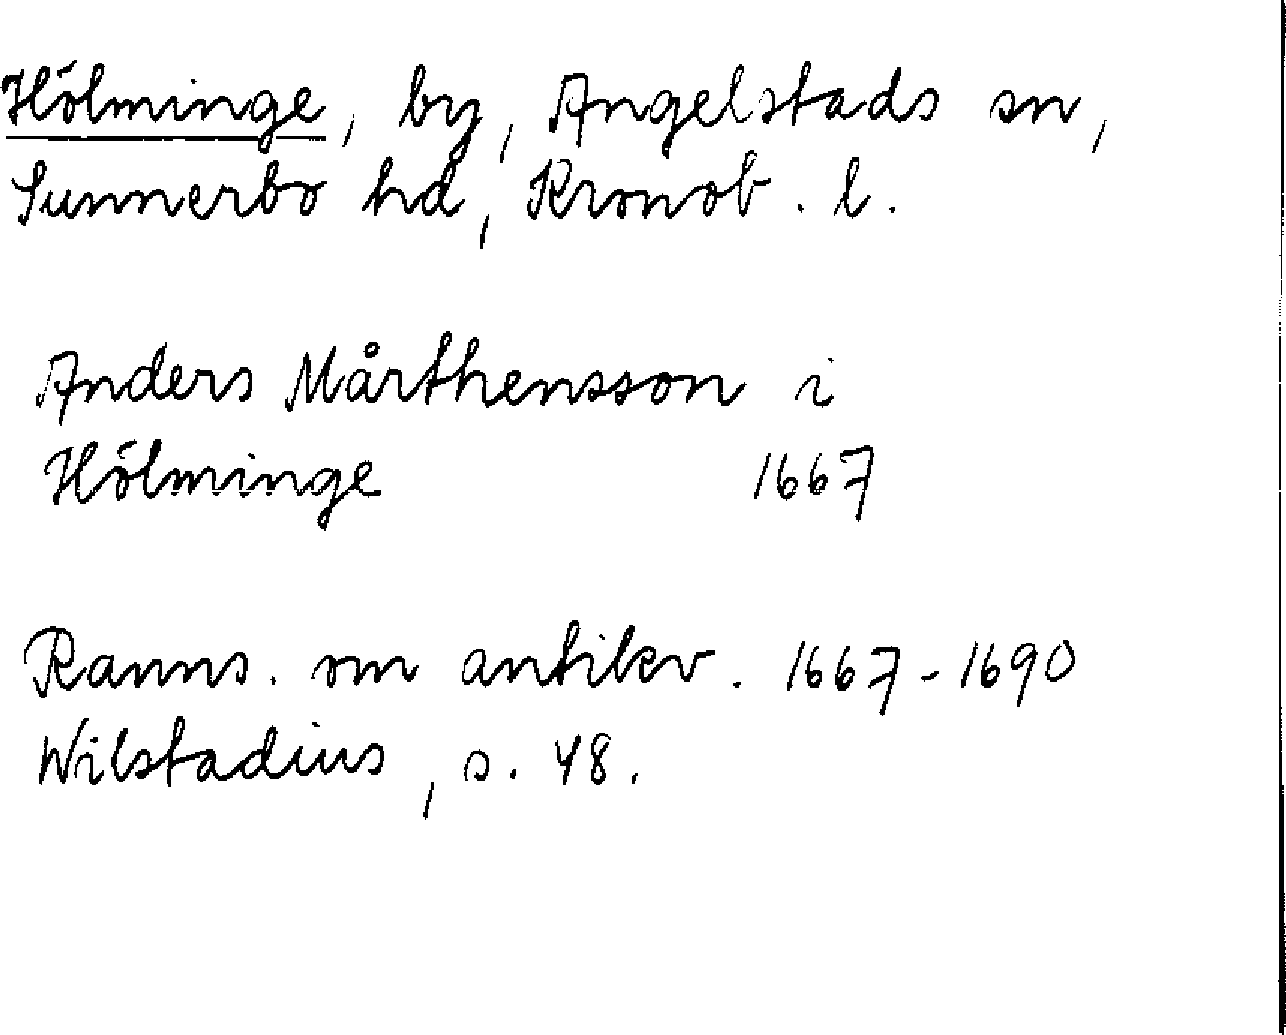 Hölminge, by, Angelstads sn,
Sunnerbo hd, Kronob. l.
Anders Mårthensson i
Hölminge 1667
Ranns. om antikv. 1667-1690
Wilstadius, s. 48.